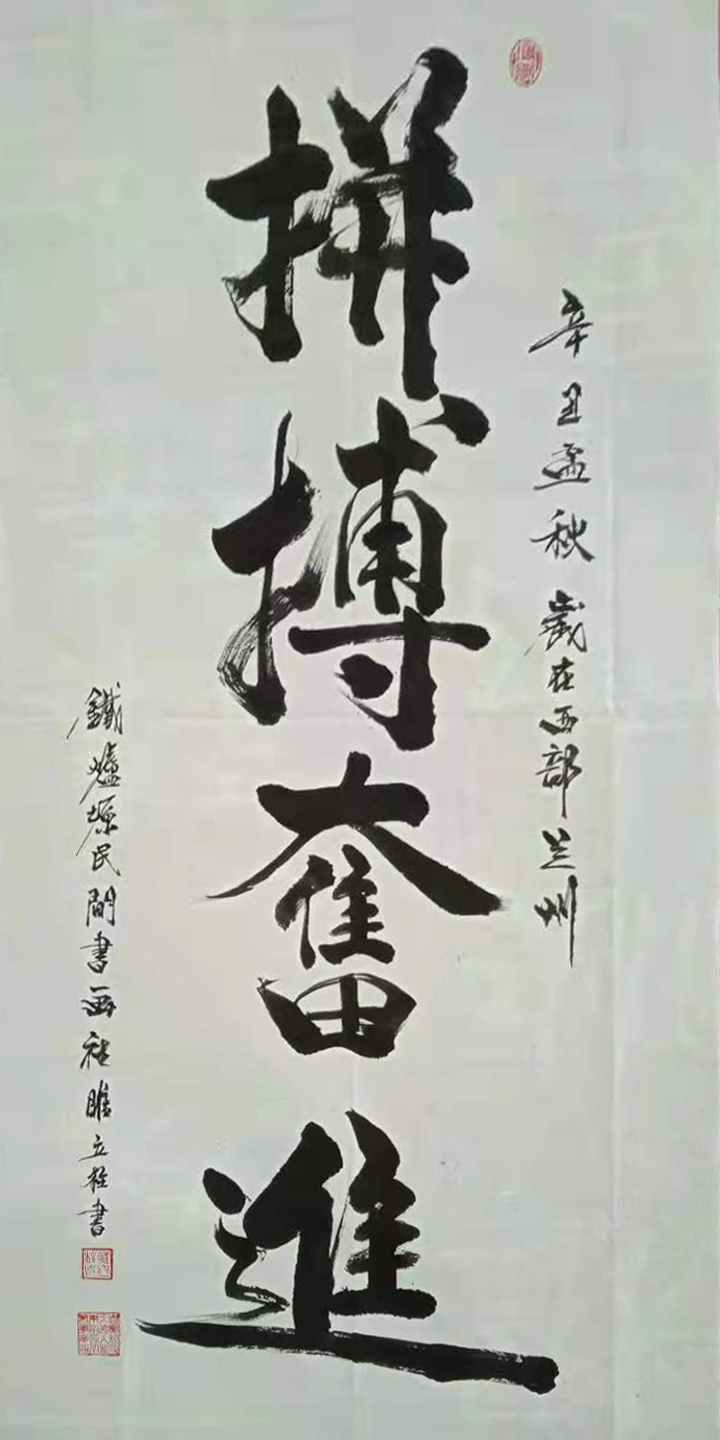 辛丑孟秋歲在西部兰州
拼搏奮進
鐵爐塬民間書画社睢立栓書